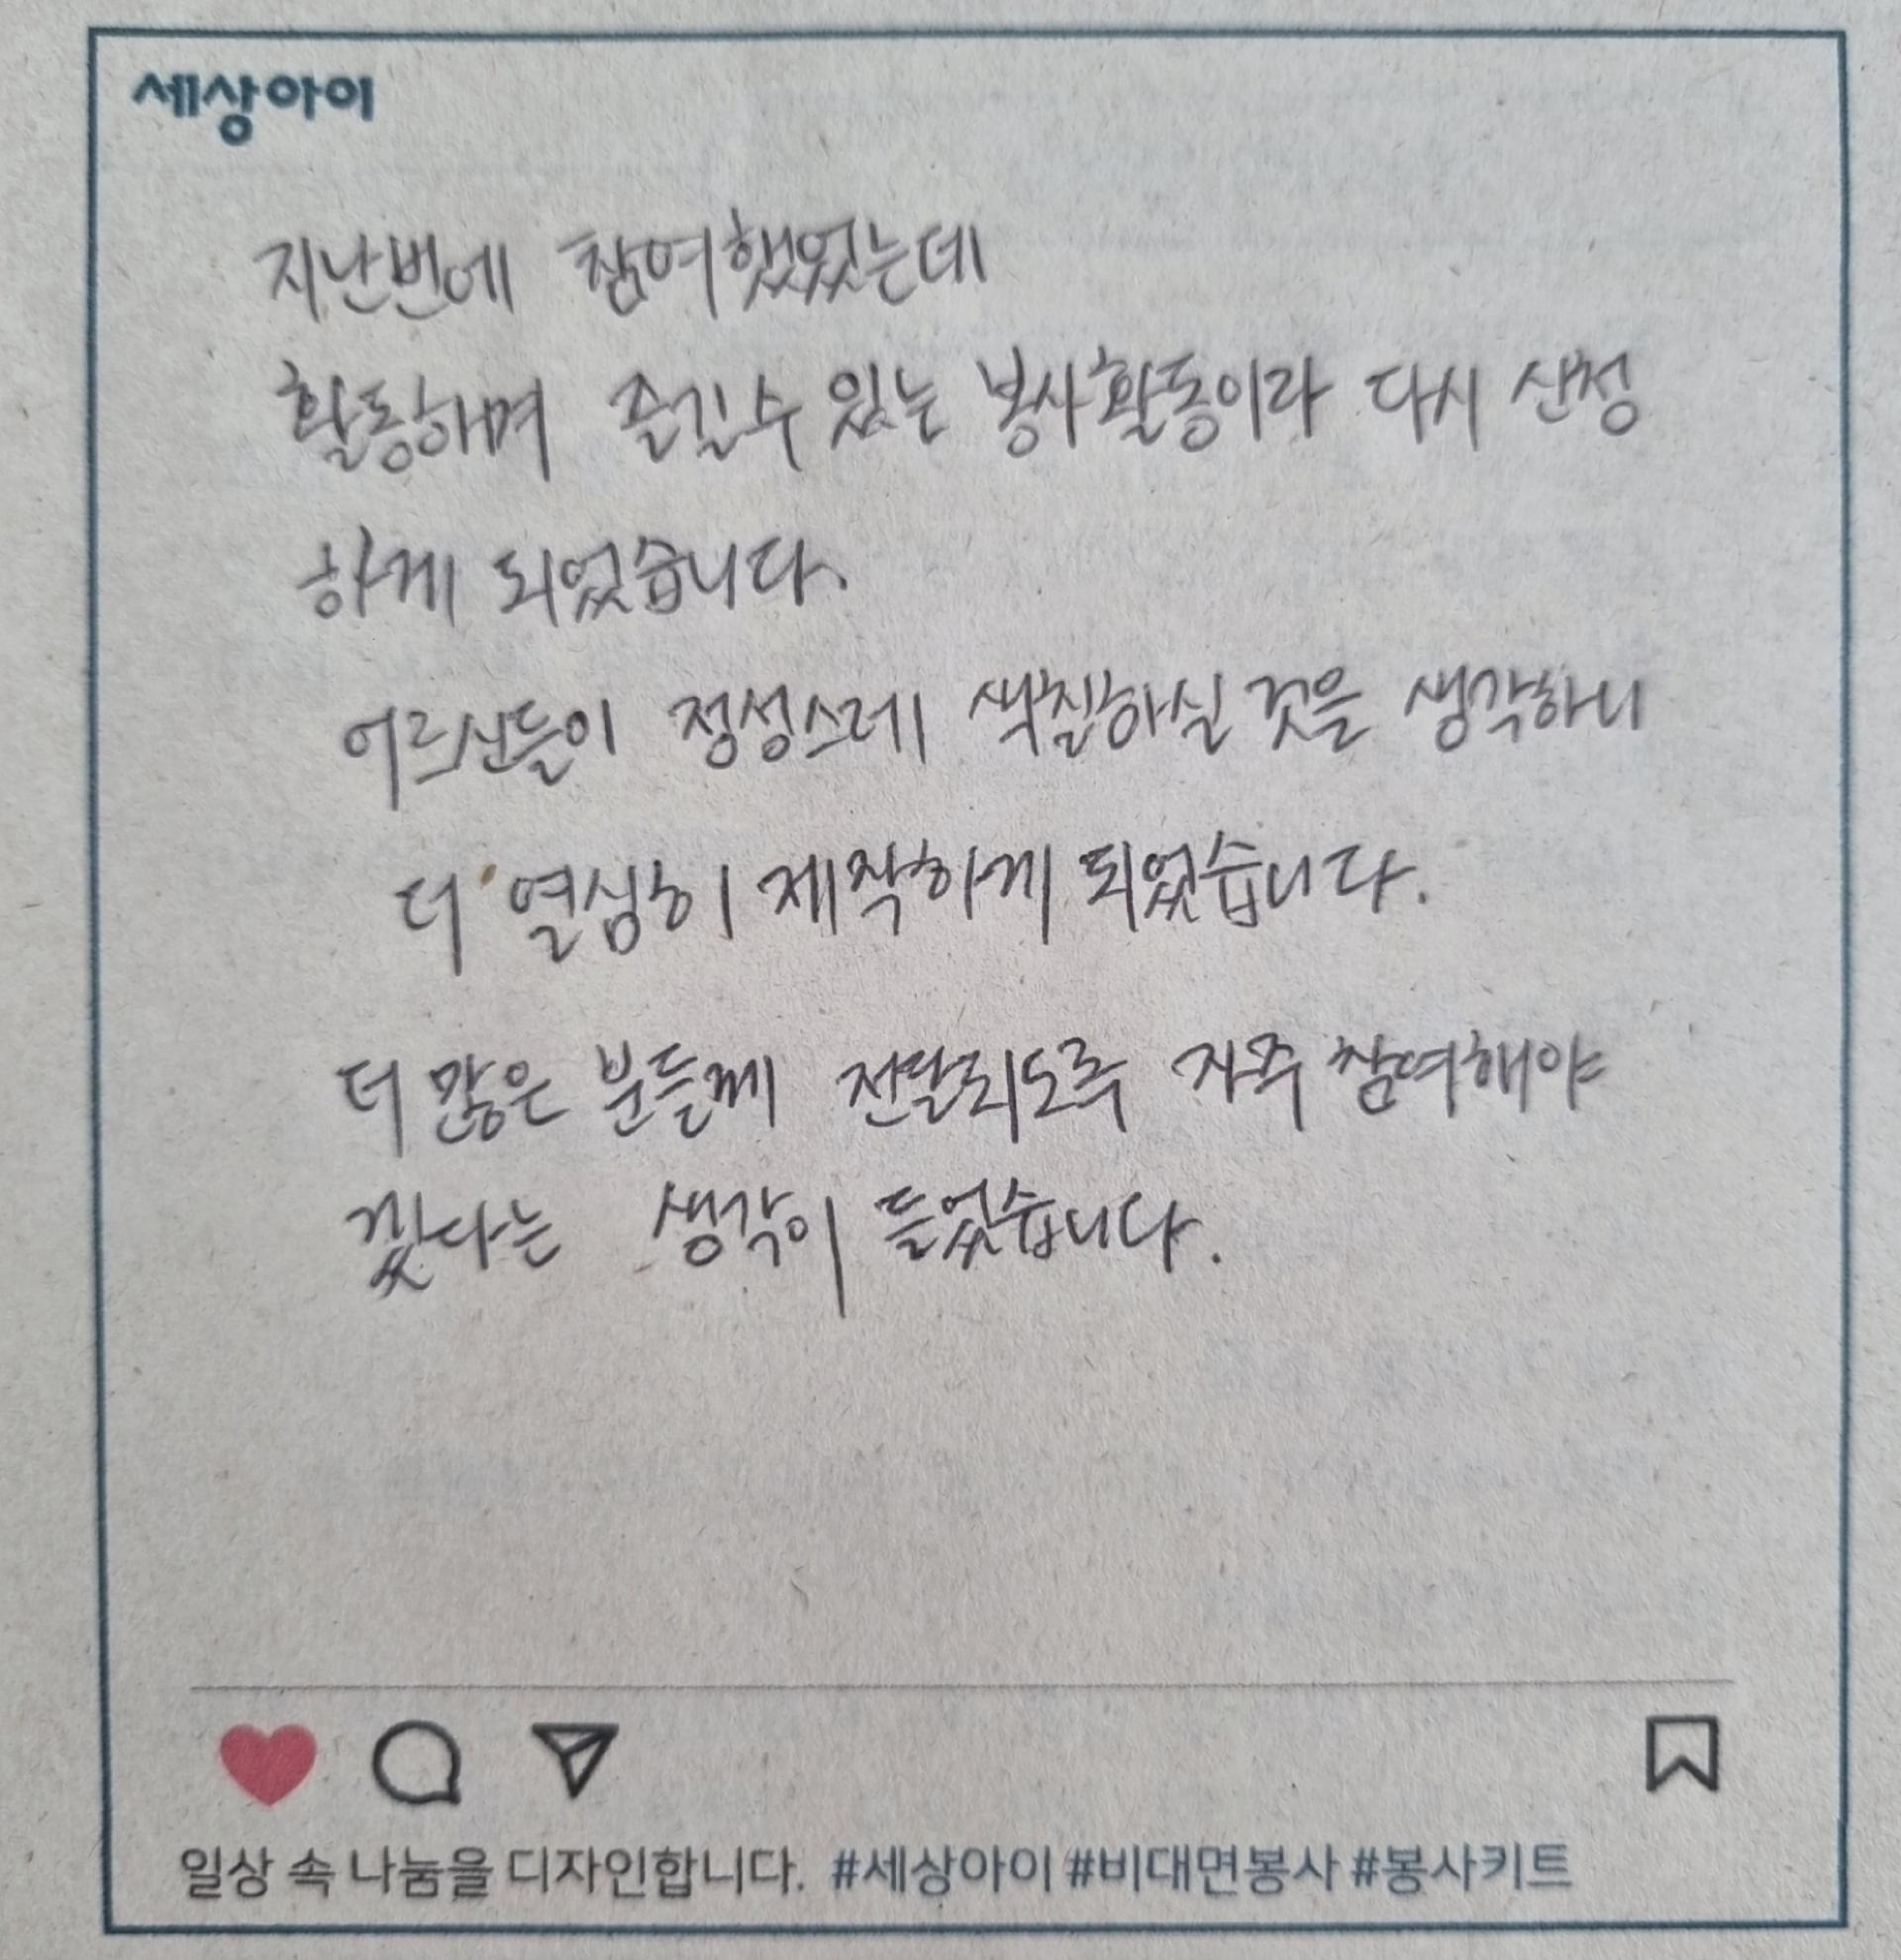 세상아이
지난번에 참여했었는데
활동하며 즐길수 있는 봉사활동이라 다시 신청
하게 되었습니다.
어르신들이 정성스레 색칠하실 것을 생각하니
더 열심히 제작하게 되었습니다.
더 많은 분들께 전달되도록 자주 참여해야
겠다는 생각이 들었습니다.
일상 속 나눔을 디자인합니다. #세상아이 #비대면봉사 #봉사키트